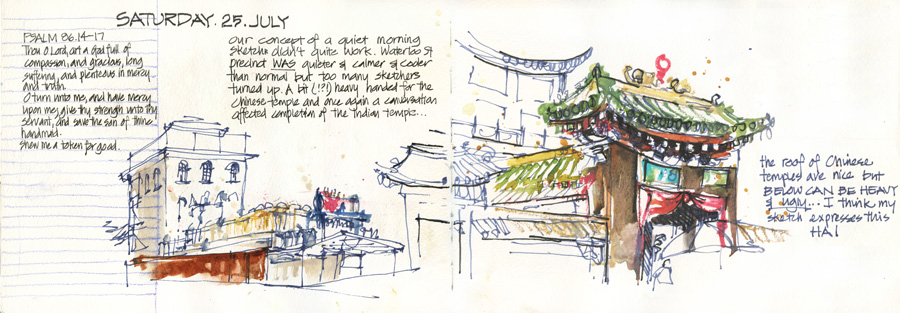 SATURDAY. 25. JULY
PSALM 86.14-17
Thou O Lord, art a God full of
compassion, and gracious, long
suffering, and plenteous in mercy
and truth.
O turn unto me, and have mercy
upon me; give thy strength unto thy
servant, and save the son of thine
handmaid.
Show me a token for good.
Our concept of a quiet morning
sketch didn't quite work. Waterloo St
precinct WAS quieter & calmer & cooler
than normal but too many sketchers
turned up. A bit (!?!) heavy handed for the
Chinese temple and once again a conversation
affected completion of the Indian temple...
the roof of Chinese
temples are nice but
BELOW CAN BE HEAVY
& ugly... I think my
sketch expresses this
HA!